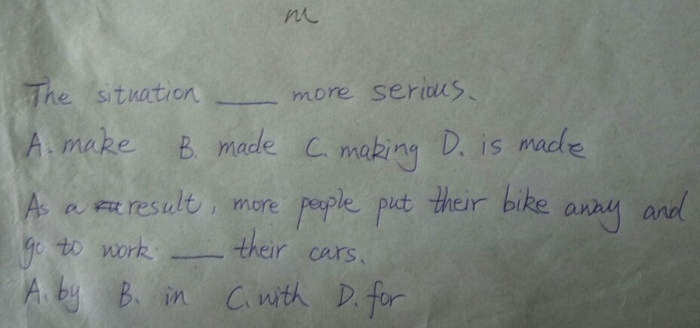 m
The situation ____ more serious.
A. make B. made C. making D. is made
As a result, more people put their bike away and
go to work ____ their cars.
A. by B. in C. with D. for